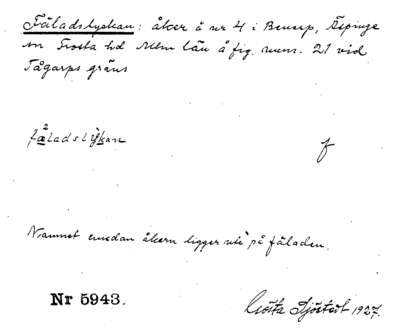 Fäladslyckan: åker å nr 4 i Benarp, Äspinge
sn Frosta hd Mlm län å fig. num. 21 vid
Tågarps gräns
fäladslykan f
Namnet emedan åkern ligger ute på fäladen.
Nr 5943. Gösta Sjöstedt 1927.